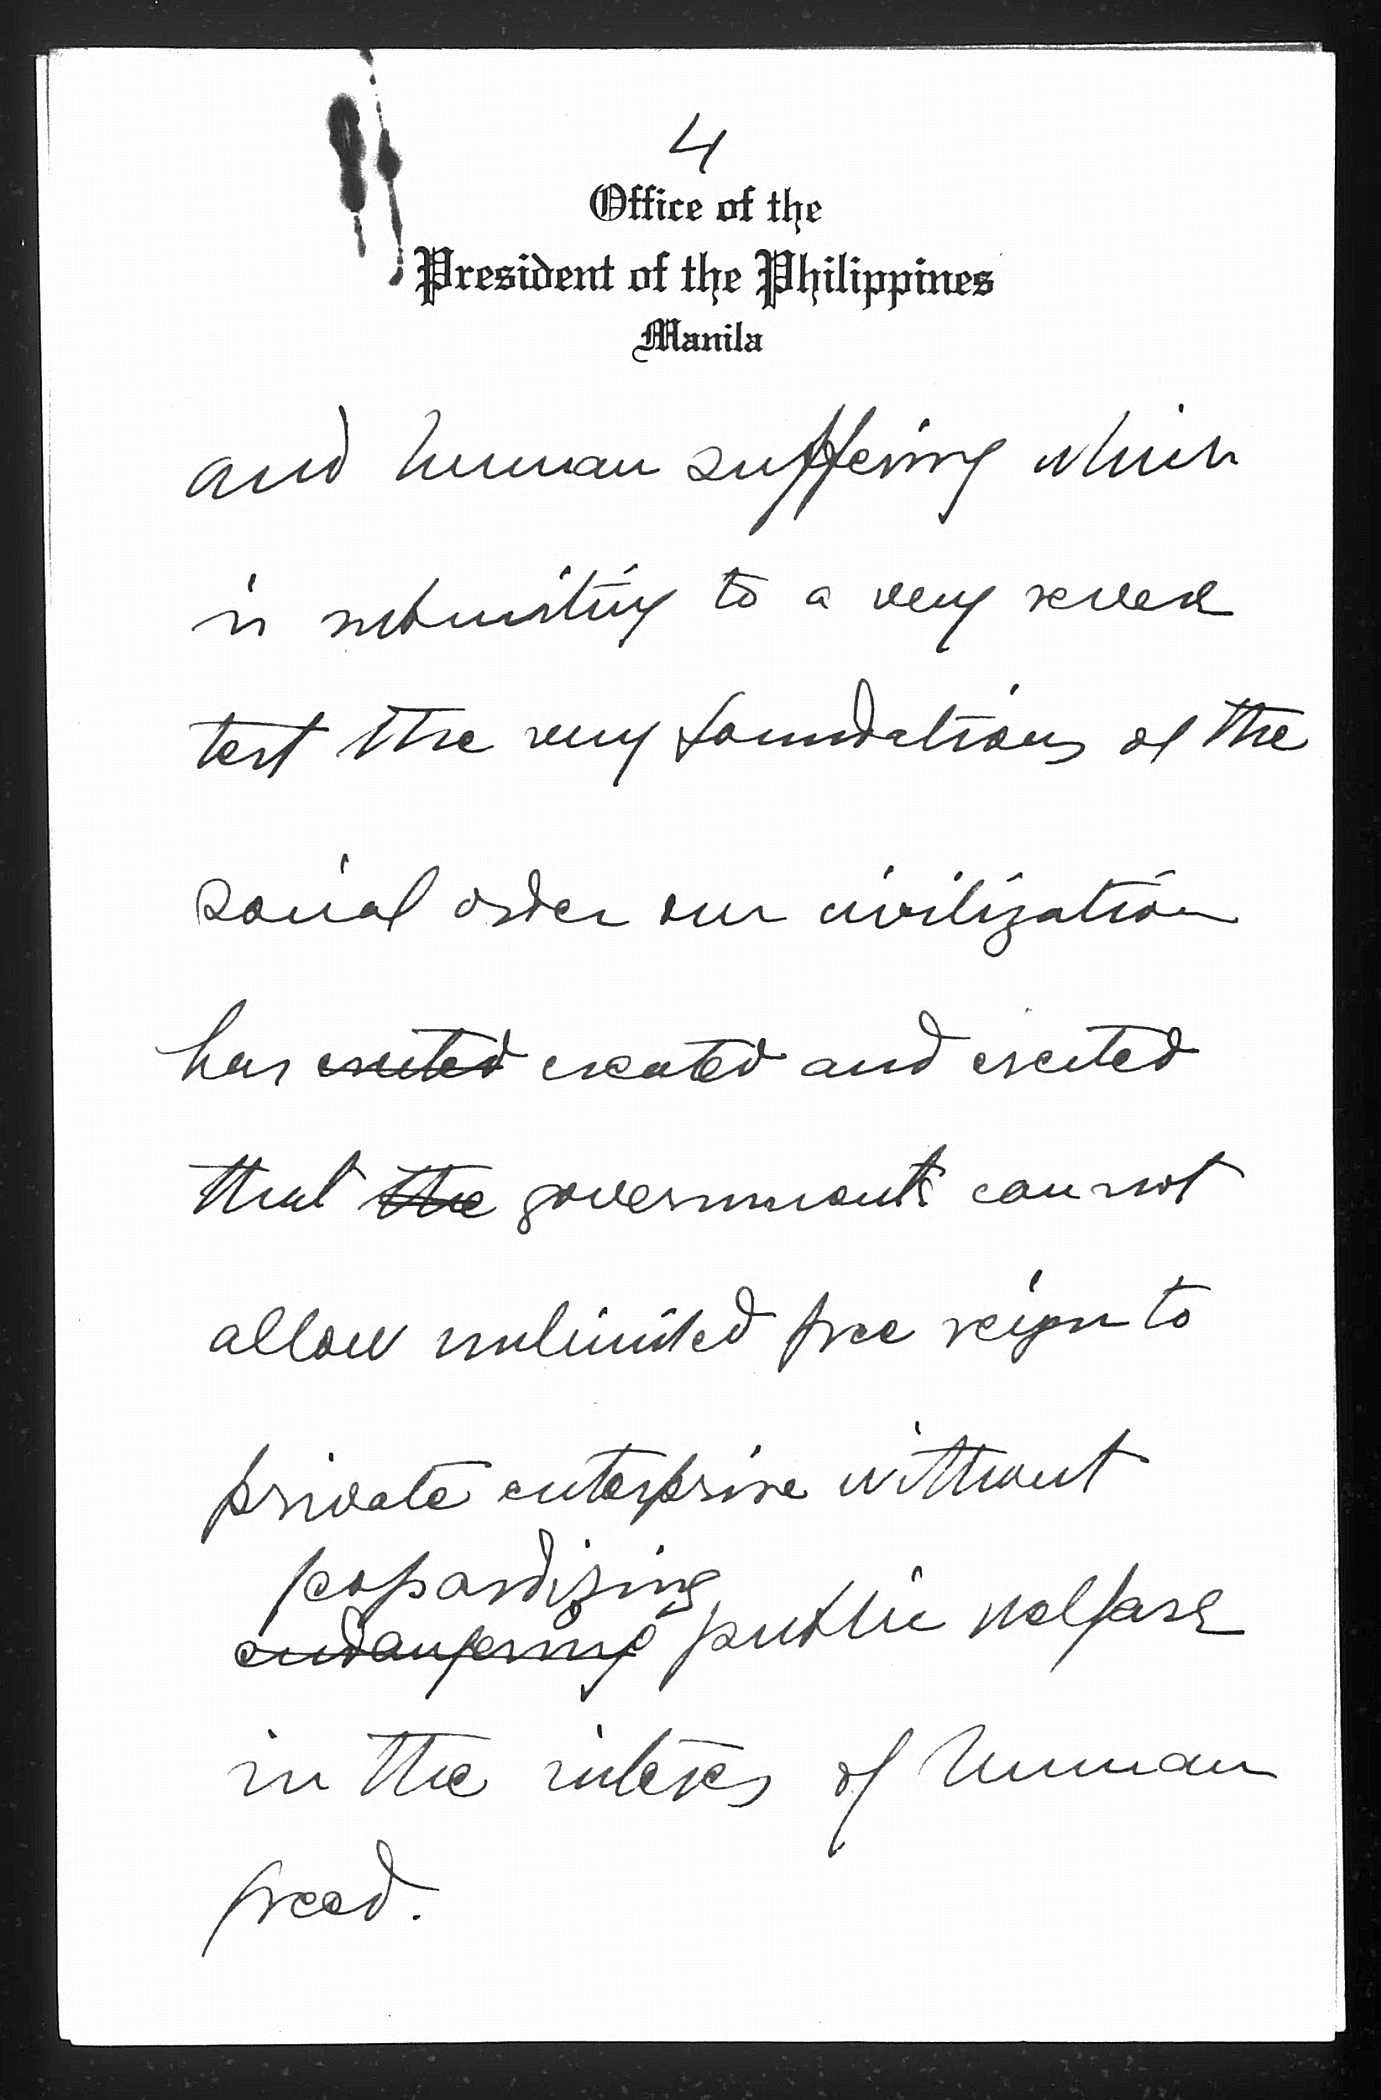 4
Office of the
President of the Philippines
Manila
and human suffering which
is submitting to a very severe
test the very foundations of the
social order our civilization
has erected created and erected
that the governments cannot
allow unlimited free reign to
private enterprise without
jeopardizing
endangering public welfare
in the interes of human
greed.